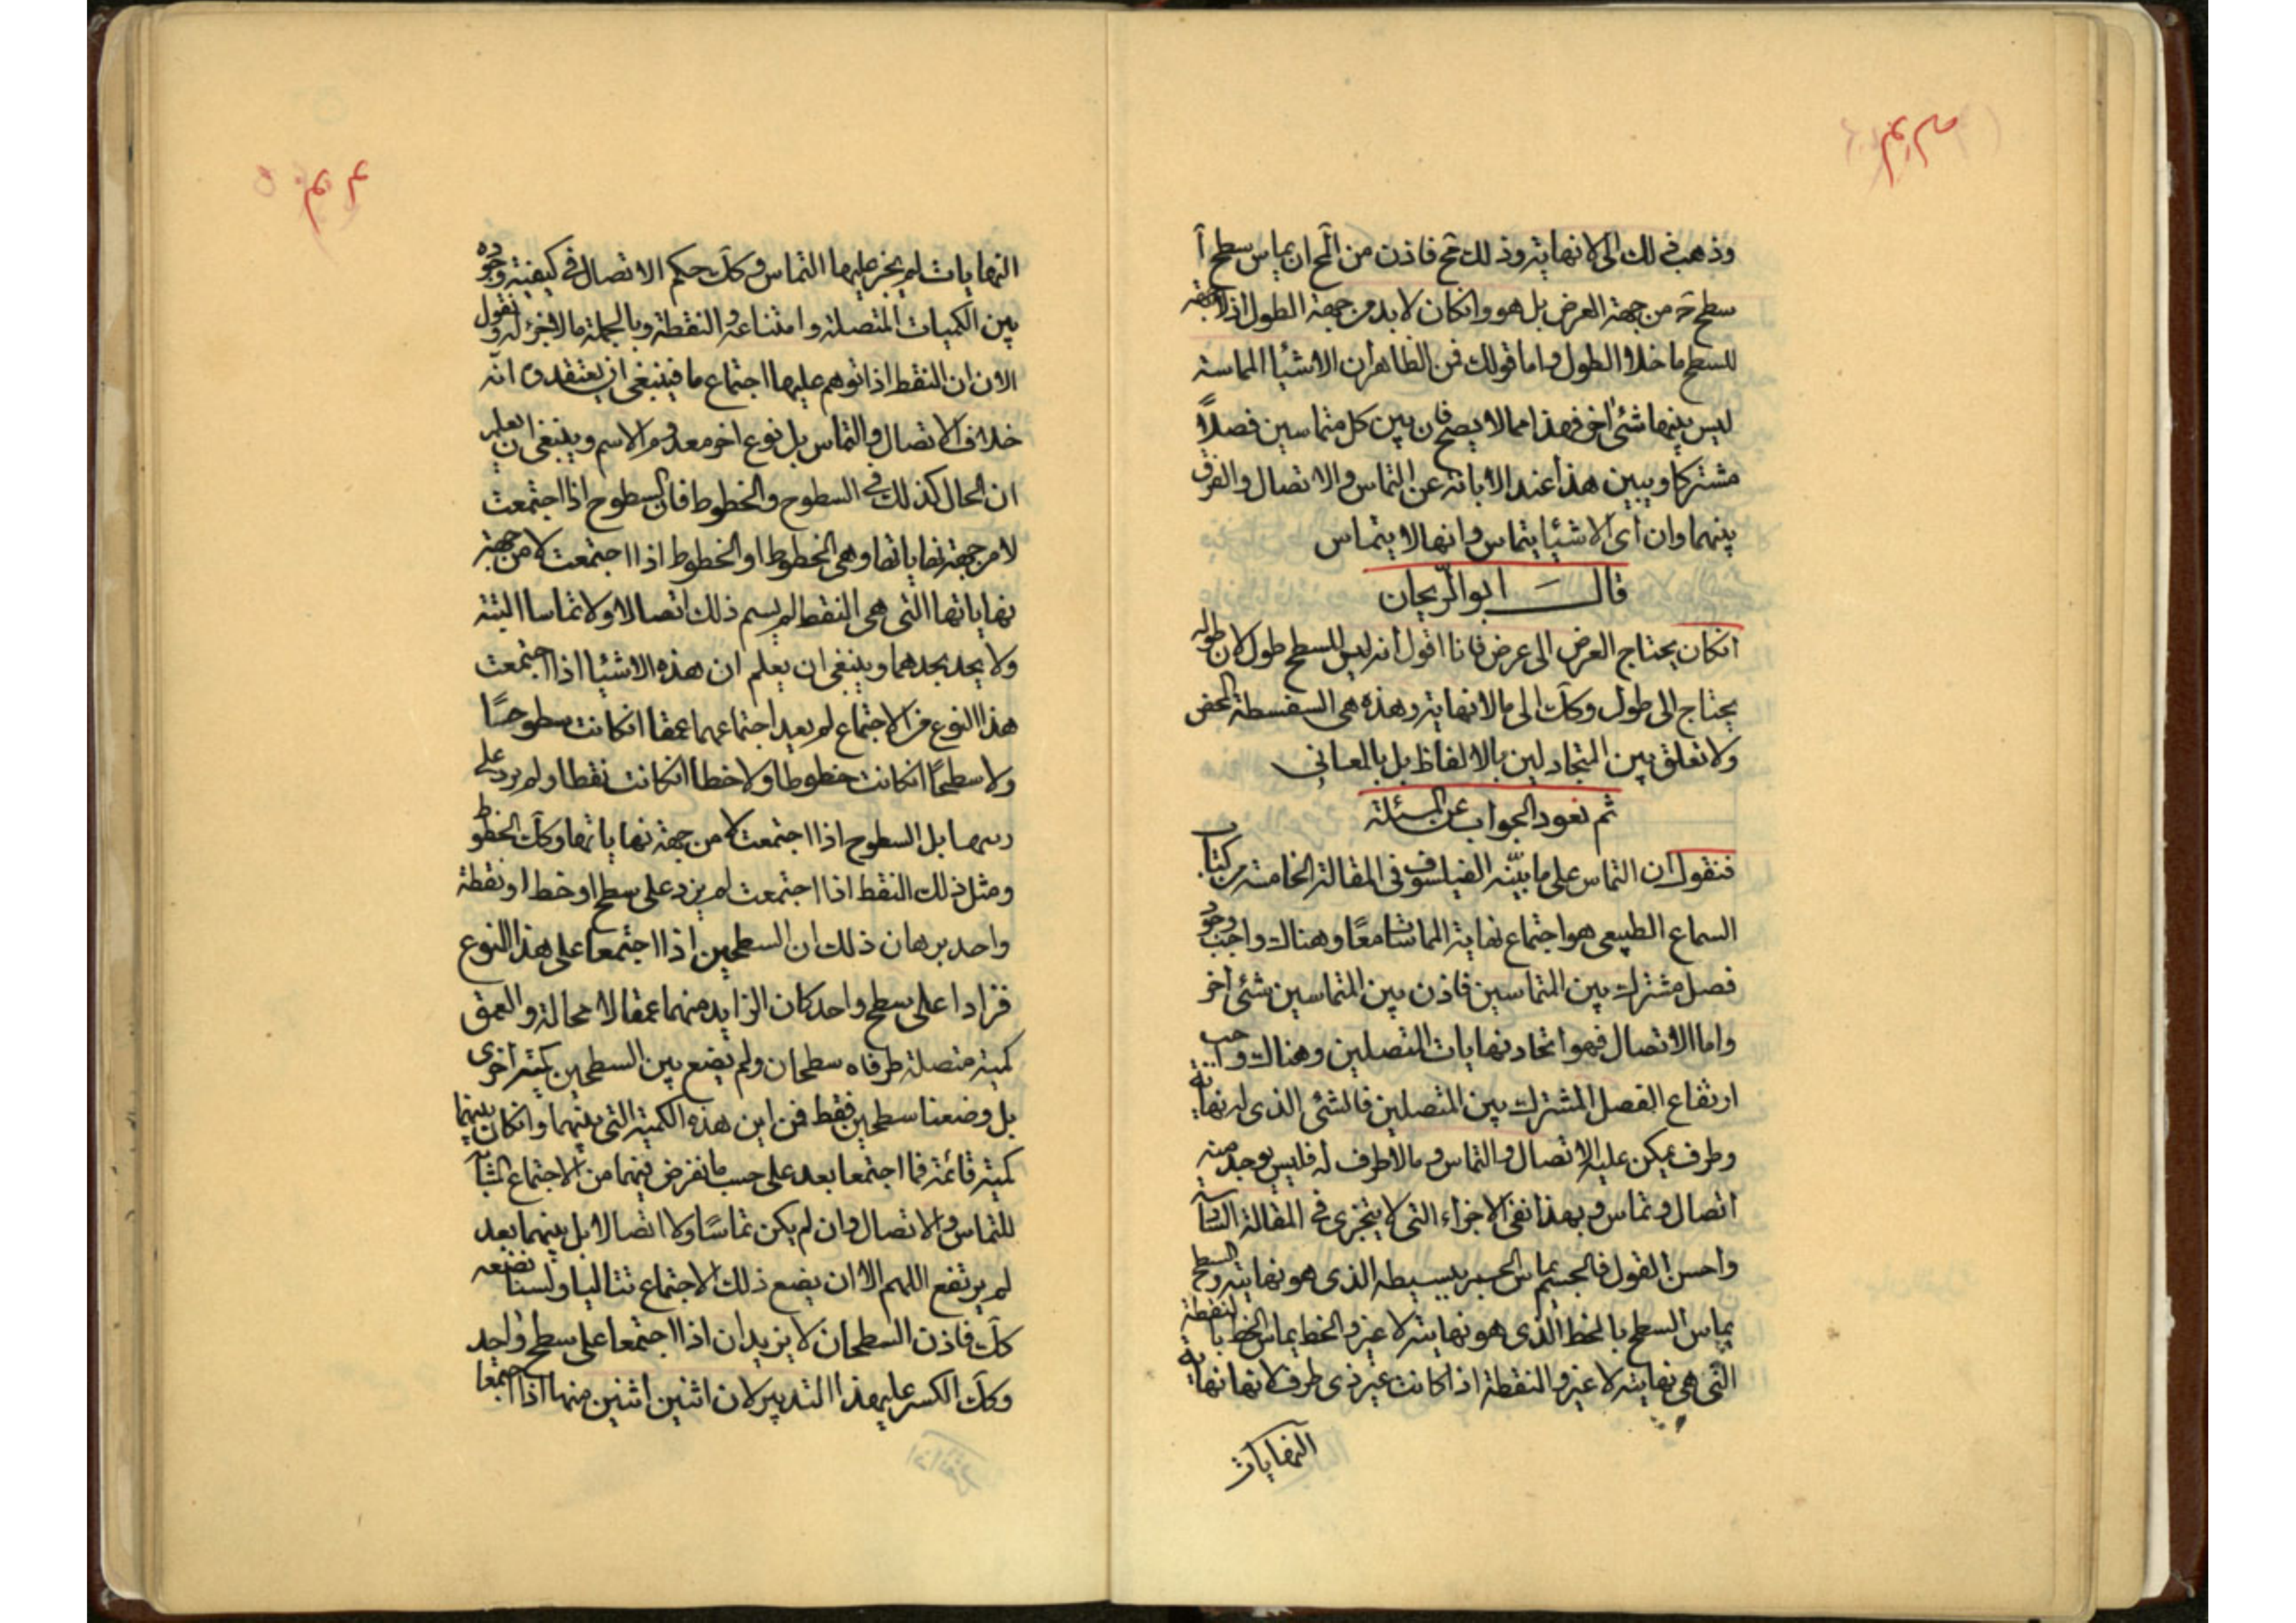 وذهب ذلك الى لا نهاية وذلك مح فاذن من المح ان يماس سطح آ
سطح حَ من جهة العرض بل هو وانكان لابد من جهة الطول اذ لا جهة
للسطح ما خلا الطول واما قولك فمن الظاهر ان الاشيا المماسة
ليس بينهما شئ اخر فهذا مما لا يصح فان بين كل متماسين فصلاً
مشتركا ويبين هذا عند الابانة عن التماس والاتصال والفرق
بينهما وان اى الاشيا يتماس وانها لا يتماس
قال ابو الريحان
انكان يحتاج العرض الى عرض فانا اقول انه ليس للسطح طول لان طوله
يحتاج الى طول وكك الى ما لا نهاية وهذه هى السفسطة المحض
ولا تعلق بين المتجادلين بالالفاظ بل بالمعاني
ثم نعود الجواب عن المسئلة
فنقول ان التماس على ما بيّنه الفيلسوف فى المقالة الخامسة من كتاب
السماع الطبيعى هو اجتماع نهاية المماسات معًا وهناك واجب وجود
فصل مشترك بين المتماسين فاذن بين المتماسين شئ اخر
واما الاتصال فهو اتحاد نهايات المتصلين وهناك واجب
ارتفاع الفصل المشترك بين المتصلين فالشئ الذى له نهاية
وطرف يمكن عليه الاتصال والتماس وما لا طرف له فليس يوجد منه
اتصال وتماس وبهذا نفى الاجزاء التى لا يتجزى فى المقالة السادسة
واحسن القول فالجسم يماس الجسم ببسيطه الذى هو نهايته والسطح
يماس السطح بالخط الذى هو نهايته لا غير والخط يماس الخط بالنقطة
التى هى نهايته لا غير والنقطة اذا كانت غير ذى طرف لانها نهاية
النهايات
النهايات لم يجز عليها التماس وكك حكم الاتصال فى كيفية وجوده
بين الكميات المتصلة وامتناعه والنقطة وبالجملة ما لا جزء له ونقول
الان ان النقط اذا توهم عليها اجتماع ما فينبغى ان يعتقد انه
خلاف الاتصال والتماس بل نوع اخر معدوم الاسم وينبغى ان يعلم
ان الحال كذلك فى السطوح والخطوط فان السطوح اذا اجتمعت
لا من جهة نهاياتها وهى الخطوط او الخطوط اذا اجتمعت لا من جهة
نهاياتها التى هى النقط لم يسم ذلك اتصالا ولا تماسا البتة
ولا يحد بحدهما وينبغى ان يعلم ان هذه الاشيا اذا اجتمعت
هذا النوع من الاجتماع لم يعيد اجتماعهما عمقا انكانت سطوحًا
ولا سطحًا انكانت خطوطا ولا خطا انكانت نقطا ولم يزد على
بل السطوح اذا اجتمعت لا من جهة نهاياتها وكك الخطوط
ومثل ذلك النقط اذا اجتمعت لم يزد على سطح او خط او نقطة
واحد برهان ذلك ان السطحين اذا اجتمعا على هذا النوع
فزادا على سطح واحد كان الزايد منهما عمقا لا محالة والعمق
كمية متصلة طرفاه سطحان ولم يضع بين السطحين كمية اخرى
بل وضعنا سطحين فقط فمن اين هذه الكمية التى بينهما وانكان بينهما
كمية قائمة فما اجتمعا بعد على حسب ما نفرض فيهما من الاجتماع
للتماس والاتصال وان لم يكن تماسًا ولا اتصالا بل بينهما بعد
لم يرتفع اللهم الا ان يضع ذلك الاجتماع تتاليا ولسنا نضعه
كك فاذن السطحان لا يزيدان اذا اجتمعا على سطح واحد
وكك الكسر عليهذا التدبير لان اثنين اثنين منهما اذا اجتمعا